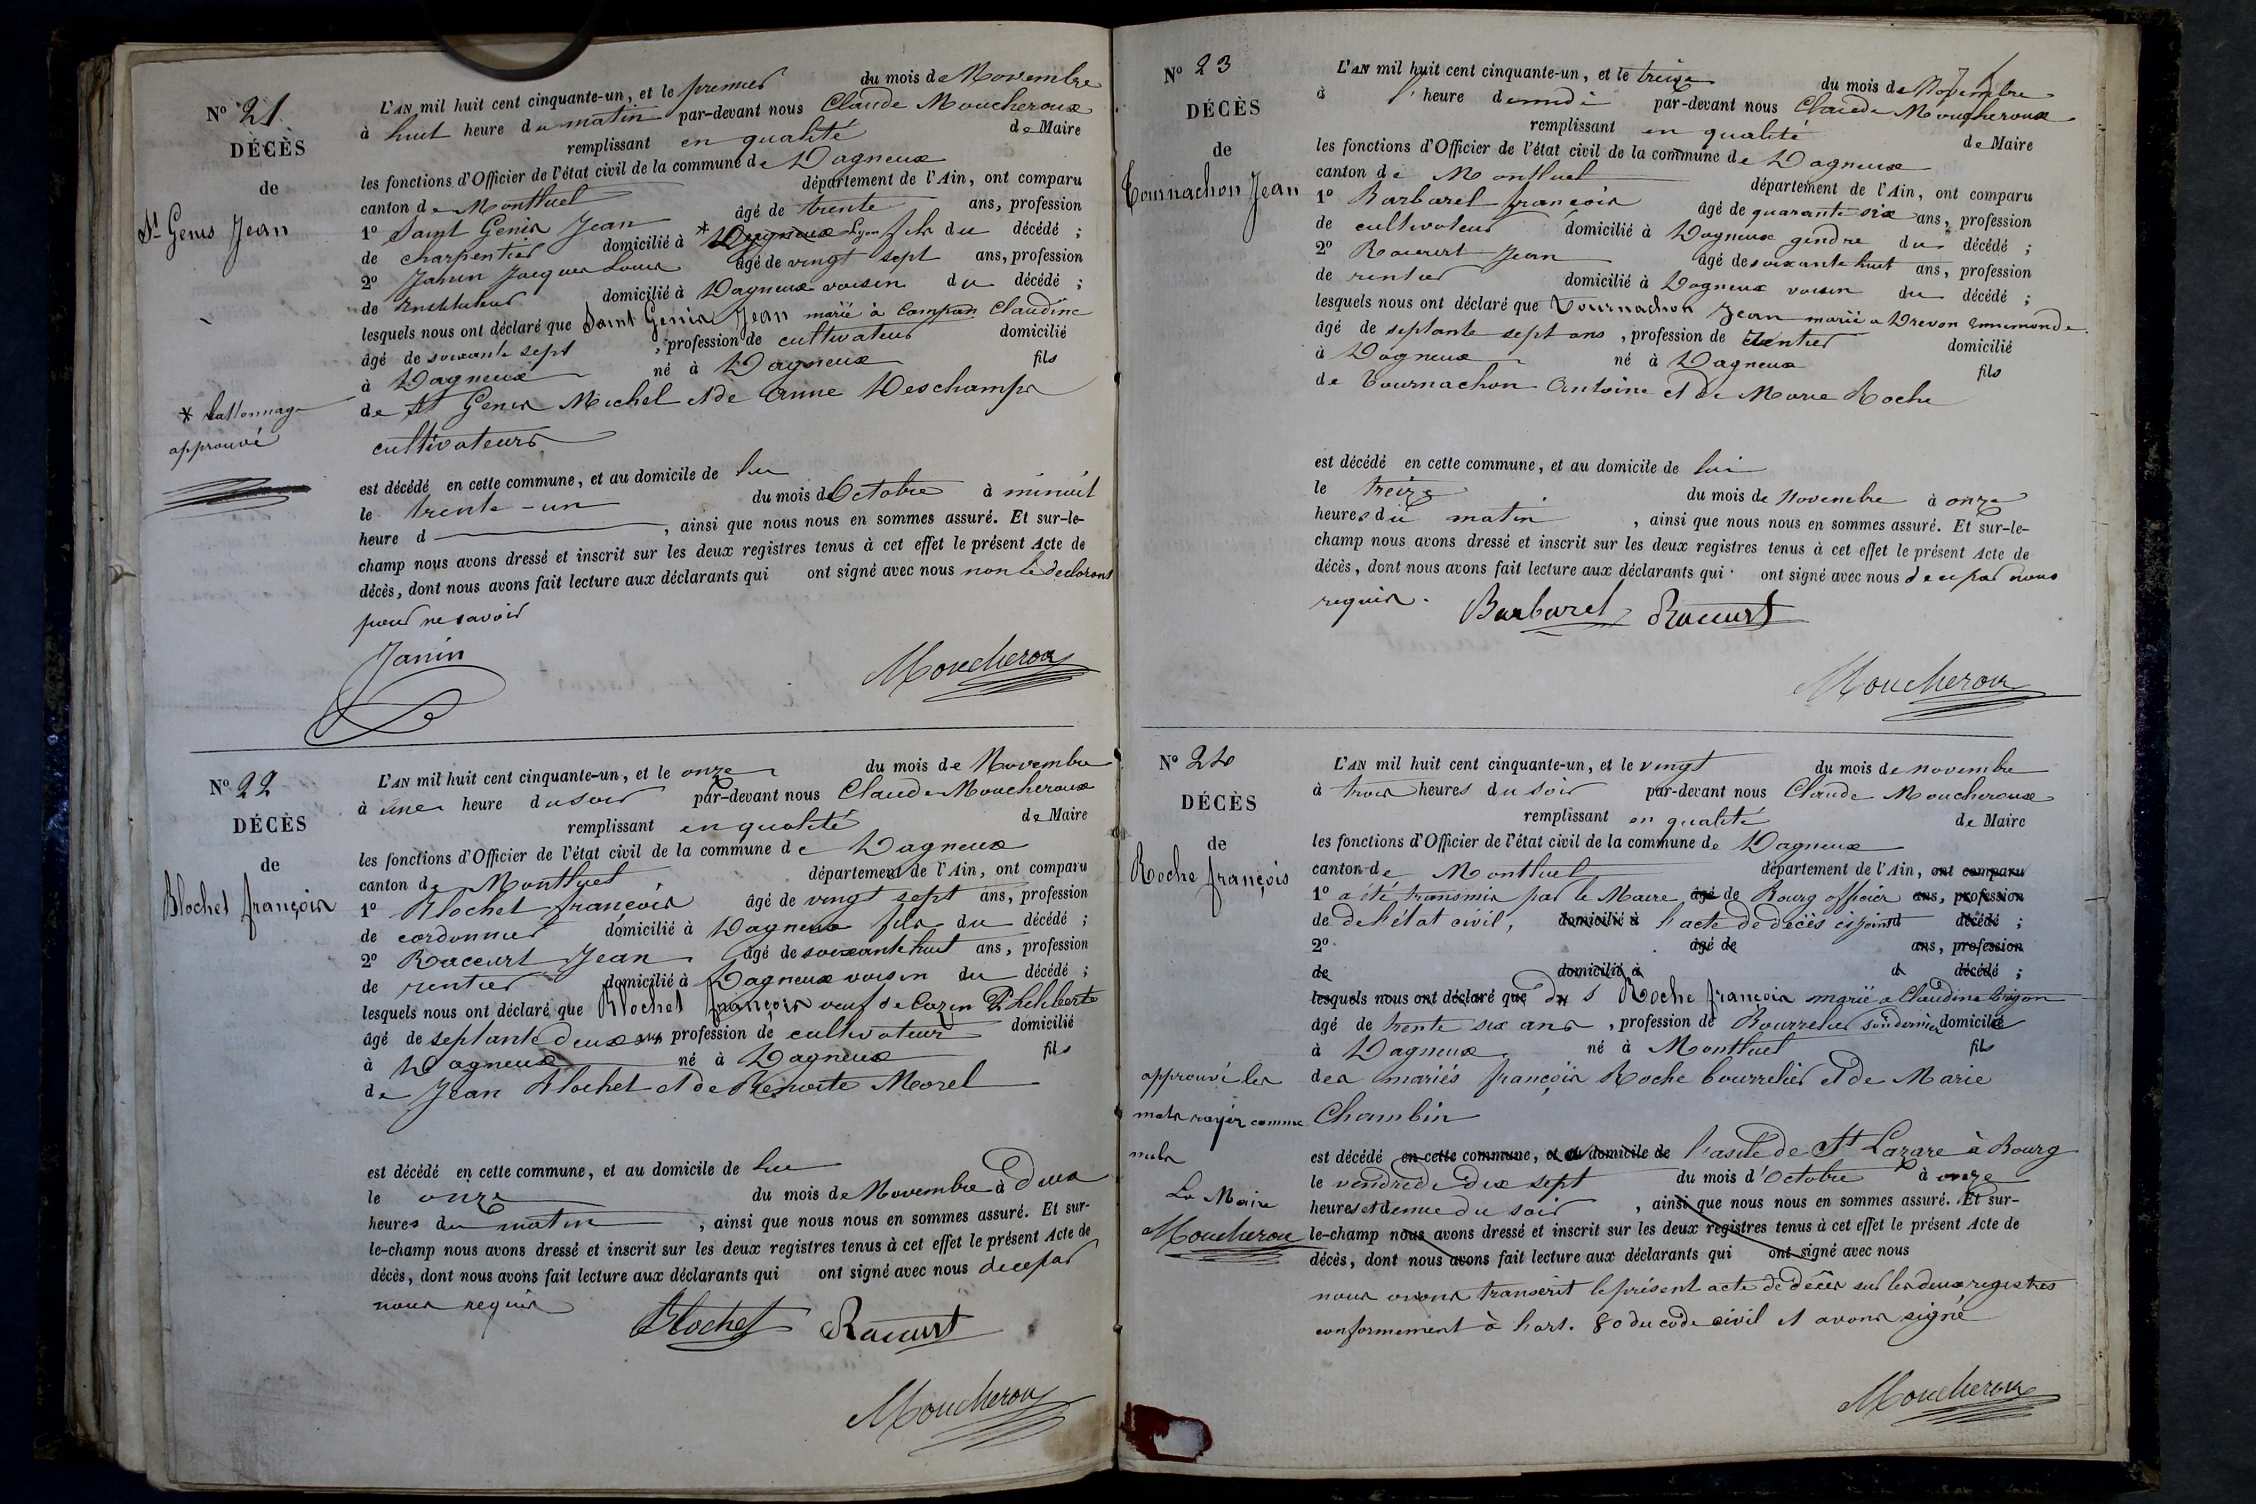 N° 21
DÉCÈS
de
St Genis Jean
L'AN mil huit cent cinquante-un, et le premier du mois de Novembre
à huit heure du matin par-devant nous Claude Moucheroux
remplissant en qualité de Maire
les fonctions d'Officier de l'état civil de la commune de Dagneux
canton de Montluel département de l'Ain, ont comparu
1° Saint Genis Jean âgé de trente ans, profession
de charpentier domicilié à * Dagneux Lyon fils du décédé ;
2° Janin Jacques Louis âgé de vingt sept ans, profession
de Instituteur domicilié à Dagneux voisin du décédé ;
lesquels nous ont déclaré que Saint Genis Jean marié à Campan Claudine
âgé de soixante sept , profession de cultivateur domicilié
à Dagneux né à Dagneux fils
de St Genis Michel et de Anne Deschamps
cultivateurs
* battonnage
approuvé
est décédé en cette commune, et au domicile de lui
le trente-un du mois d'Octobre à minuit
heure d , ainsi que nous nous en sommes assuré. Et sur-le-
champ nous avons dressé et inscrit sur les deux registres tenus à cet effet le présent Acte de
décès, dont nous avons fait lecture aux déclarants qui ont signé avec nous non le declarant
pour ne savoir
Janin
Moucheroux
N° 22
DÉCÈS
de
Blochet françois
L'AN mil huit cent cinquante-un, et le onze du mois de Novembre
à une heure du soir par-devant nous Claude Moucheroux
remplissant en qualité de Maire
les fonctions d'Officier de l'état civil de la commune de Dagneux
canton de Montluel département de l'Ain, ont comparu
1° Blochet françois âgé de vingt sept ans, profession
de cordonnier domicilié à Dagneux fils du décédé ;
2° Raccurt Jean âgé de soixante huit ans, profession
de rentier domicilié à Dagneux voisin du décédé ;
lesquels nous ont déclaré que Blochet françois veuf de Cozin Philiberte
âgé de septante deux ans profession de cultivateur domicilié
à Dagneux né à Dagneux fils
de Jean Blochet et de Benoite Morel
est décédé en cette commune, et au domicile de lui
le onze du mois de Novembre à Deux
heures du matin , ainsi que nous nous en sommes assuré. Et sur-
le-champ nous avons dressé et inscrit sur les deux registres tenus à cet effet le présent Acte de
décès, dont nous avons fait lecture aux déclarants qui ont signé avec nous de ce par
nous requis
Blochet Racurt
Moucheroux
N° 23
DÉCÈS
de
Tournachon Jean
L'AN mil huit cent cinquante-un, et le treize du mois de Novembre
à heure de midi par-devant nous Claude Moucheroux
remplissant en qualité de Maire
les fonctions d'Officier de l'état civil de la commune de Dagneux
canton de Montluel département de l'Ain, ont comparu
1° Barbarel françois âgé de quarante six ans, profession
de cultivateur domicilié à Dagneux gendre du décédé ;
2° Raccurt Jean âgé de soixante huit ans, profession
de rentier domicilié à Dagneux voisin du décédé ;
lesquels nous ont déclaré que Tournachon Jean marié a Drevon Ennemonde
âgé de septante sept ans , profession de Rentier domicilié
à Dagneux né à Dagneux fils
de Tournachon Antoine et de Marie Roche
est décédé en cette commune, et au domicile de lui
le treize du mois de Novembre à onze
heures du matin , ainsi que nous nous en sommes assuré. Et sur-le-
champ nous avons dressé et inscrit sur les deux registres tenus à cet effet le présent Acte de
décès, dont nous avons fait lecture aux déclarants qui ont signé avec nous de ce par nous
requis.
Barbarel Racurt
Moucheroux
N° 24
DÉCÈS
de
Roche françois
L'AN mil huit cent cinquante-un, et le vingt du mois de novembre
à trois heures du soir par-devant nous Claude Moucheroux
remplissant en qualité de Maire
les fonctions d'Officier de l'état civil de la commune de Dagneux
canton de Montluel département de l'Ain, ont comparu
1° a été transmis par le Maire âgé de Bourg officier ans, profession
de de l'état civil, domicilié à l'acte de décès cijoint d décédé ;
2° âgé de ans, profession
de domicilié à d décédé ;
lesquels nous ont déclaré que du s Roche françois marié a Claudine Gigon
âgé de trente six ans , profession de Bourrelier son dernier domicile
à Dagneux né à Montluel fils
des mariés françois Roche bourrelier et de Marie
Chambin
est décédé en cette commune, et au domicile de l'asile de St Lazare à Bourg
le vendredi dix sept du mois d'Octobre à onze
heures et demie du soir , ainsi que nous nous en sommes assuré. Et sur-
le-champ nous avons dressé et inscrit sur les deux registres tenus à cet effet le présent Acte de
décès, dont nous avons fait lecture aux déclarants qui ont signé avec nous
nous avons transcrit le présent acte de décès sur les deux registres
conformement à l'art. 80 du code civil et avons signé
approuvé les
mots rayés comme
nuls
Le Maire
Moucheroux
Moucheroux